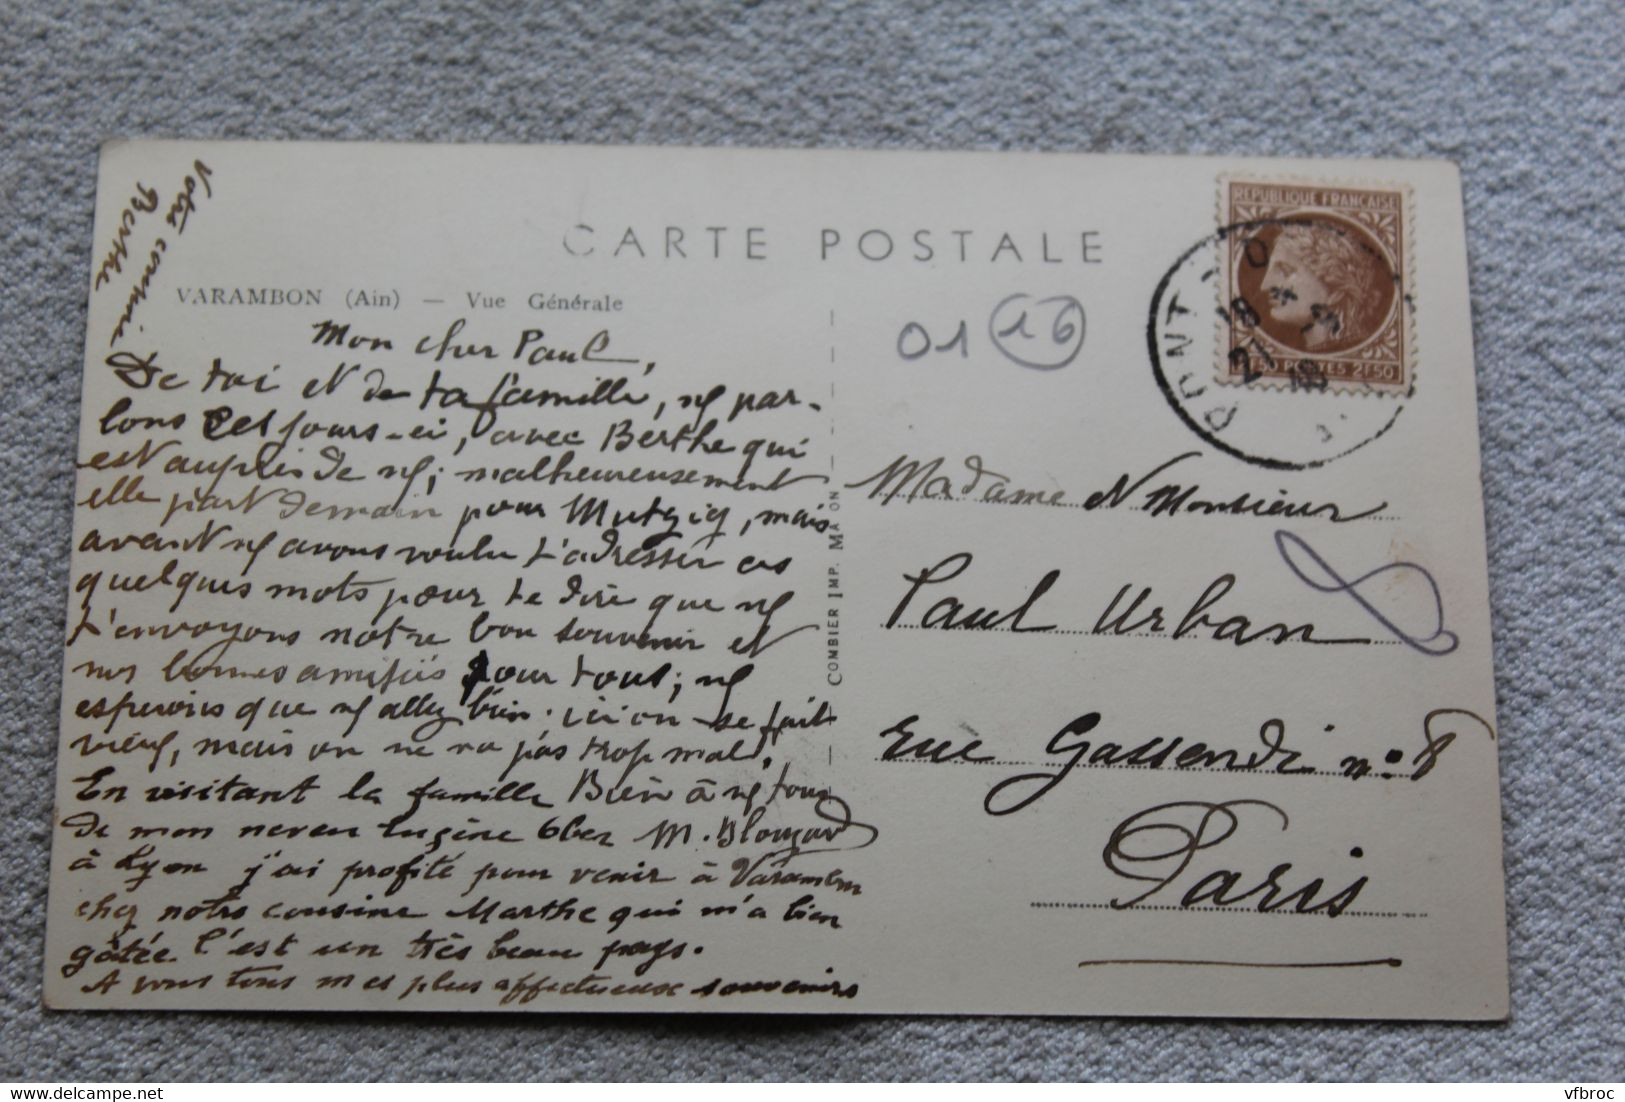 CARTE POSTALE
VARAMBON (Ain) — Vue Générale
Mon cher Paul,
De toi et de ta famille, ns par-
lons ces jours-ci, avec Berthe qui
est auprès de ns; malheureusement
elle part demain pour Mutzig, mais
avant ns avons voulu t'adresser ces
quelques mots pour te dire que ns
t'envoyons notre bon souvenir et
nos bonnes amitiés pour tous; ns
espérons que ns allez bien. ici on se fait
vieux, mais on ne va pas trop mal.
Bien à ns tous
En visitant la famille
de mon neveu Eugène Ober M. Blouzard
à Lyon j'ai profité pour venir à Varambon
chez notre cousine Marthe qui m'a bien
gâtée. C'est un très beau pays.
A vous tous mes plus affectueux souvenirs
Votre cousine
Berthe
COMBIER IMP. MACON
01 16
REPUBLIQUE FRANÇAISE
POSTES 2F50
PONT
18
27
Madame et Monsieur
Paul Urban
rue Gassendi no 8
Paris
vfbroc
www.delcampe.net